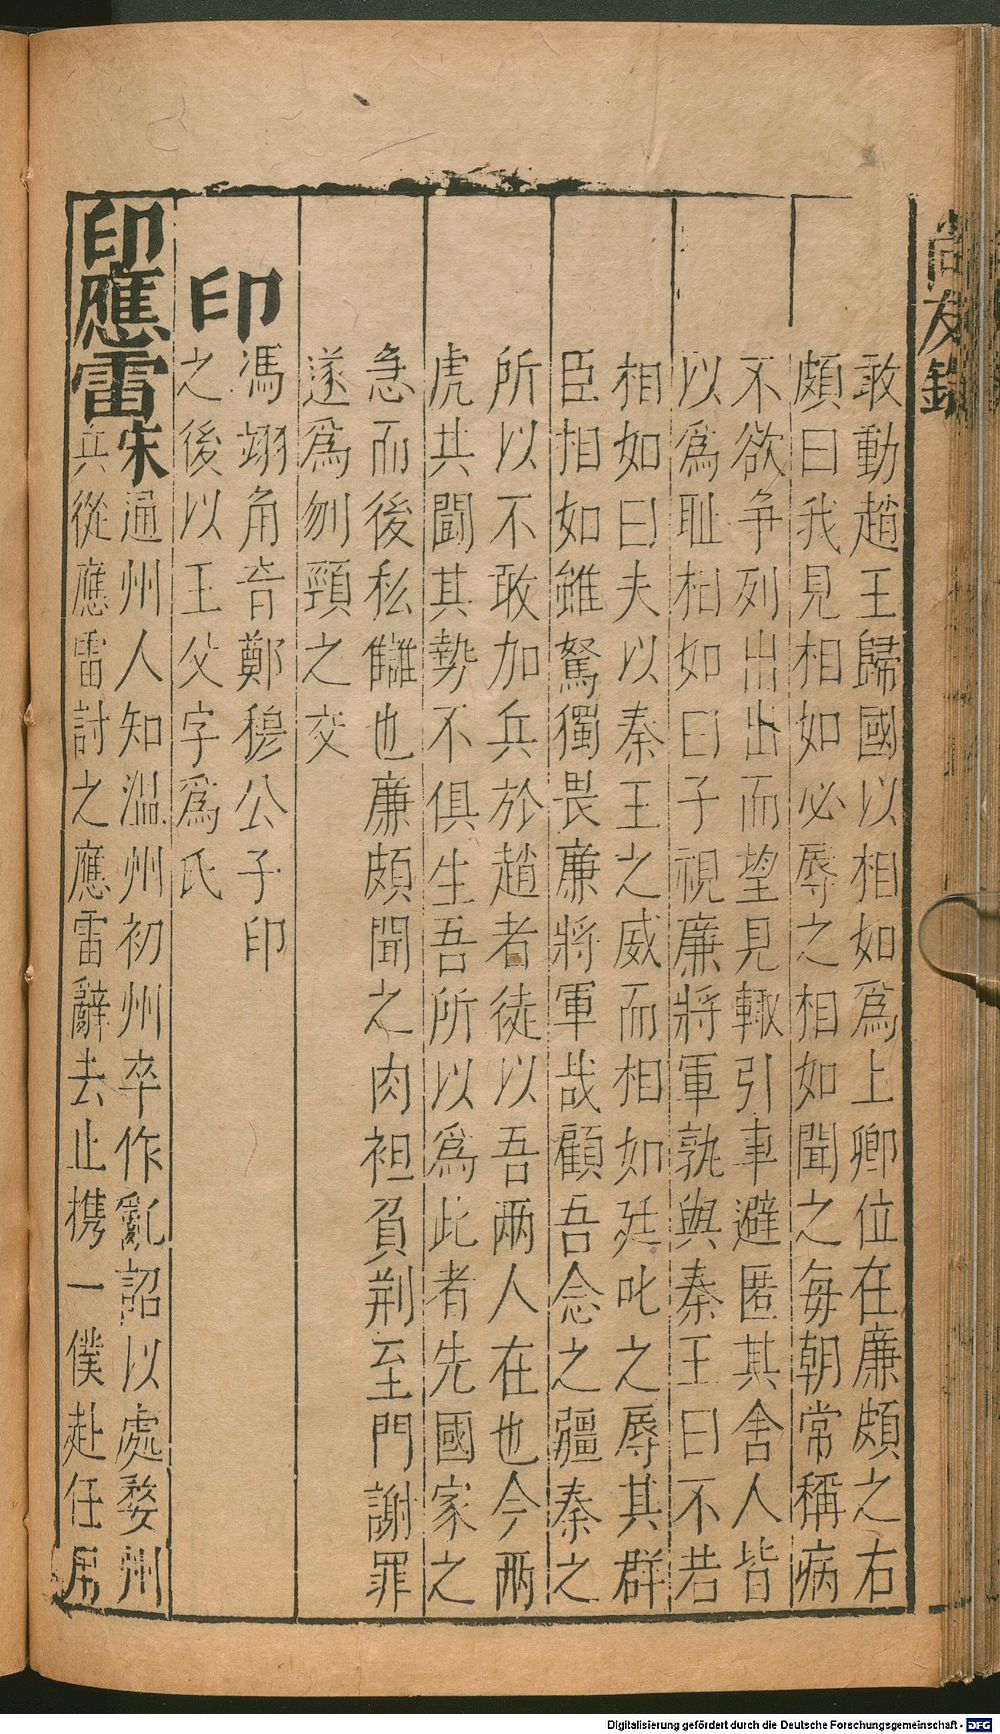 尚友錄
敢動趙王歸國以相如爲上卿位在廉頗之右
頗曰我見相如必辱之相如聞之每朝常稱病
不欲争列出出而望見輙引車避匿其舍人皆
以爲耻相如曰子視廉將軍孰與秦王曰不若
相如曰夫以秦王之威而相如廷叱之辱其群
臣相如雖駑獨畏廉將軍哉顧吾念之彊秦之
所以不敢加兵於趙者徒以吾兩人在也今兩
虎共鬪其勢不俱生吾所以爲此者先國家之
急而後私讎也廉頗聞之肉袒負荆至門謝罪
遂爲刎頸之交
印
馮翊角音鄭穆公子印
之後以王父字爲氏
印應雷
宋
通州人知溫州初州卒作亂詔以處婺州
兵從應雷討之應雷辭去止携一僕赴任用
Digitalisierung gefördert durch die Deutsche Forschungsgemeinschaft - DFG